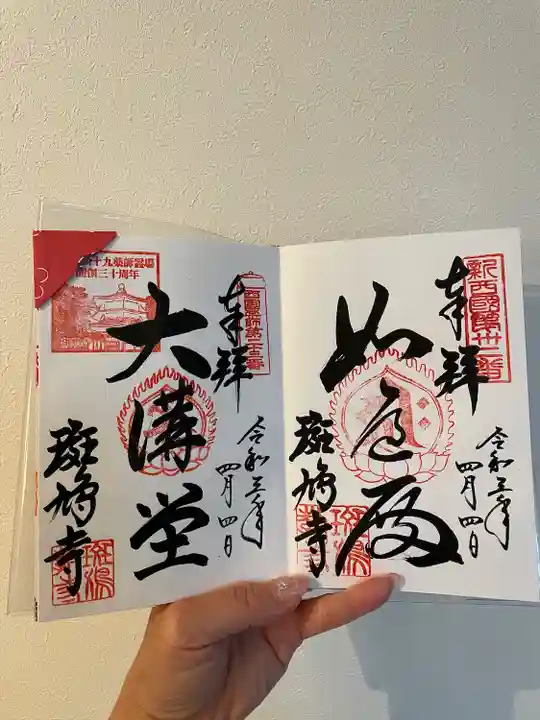 新西國第卅二番
奉拝
如意殿
斑鳩寺
令和三年
四月四日
奉拝
大講堂
斑鳩寺
令和三年
四月四日
十九薬師霊場
開創三十周年
斑鳩寺
斑鳩寺